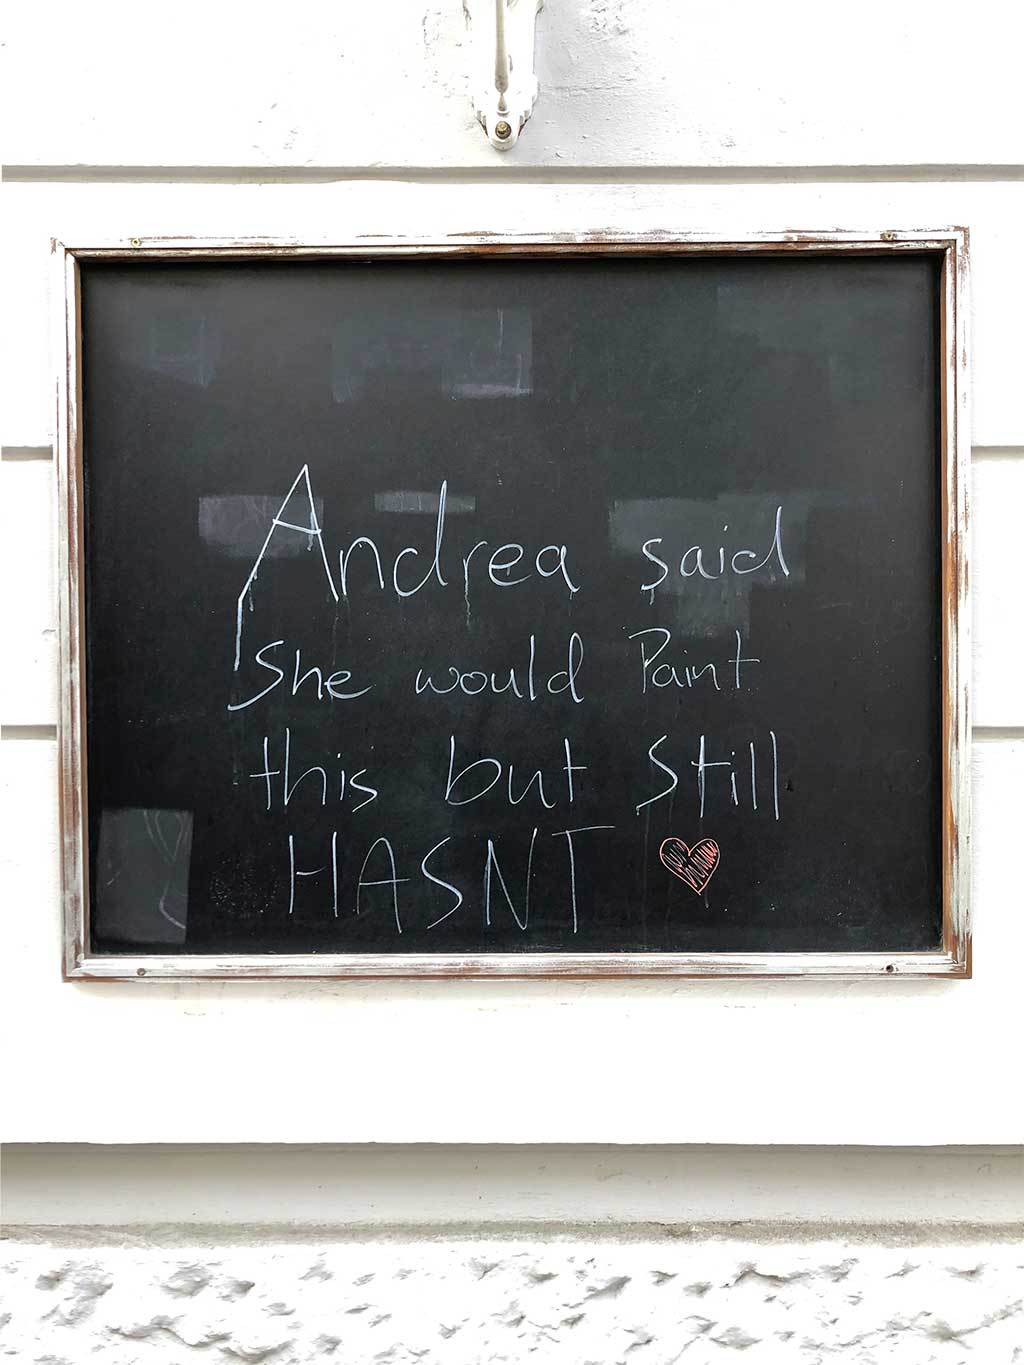 Andrea said
She would Paint
this but Still
HASNT